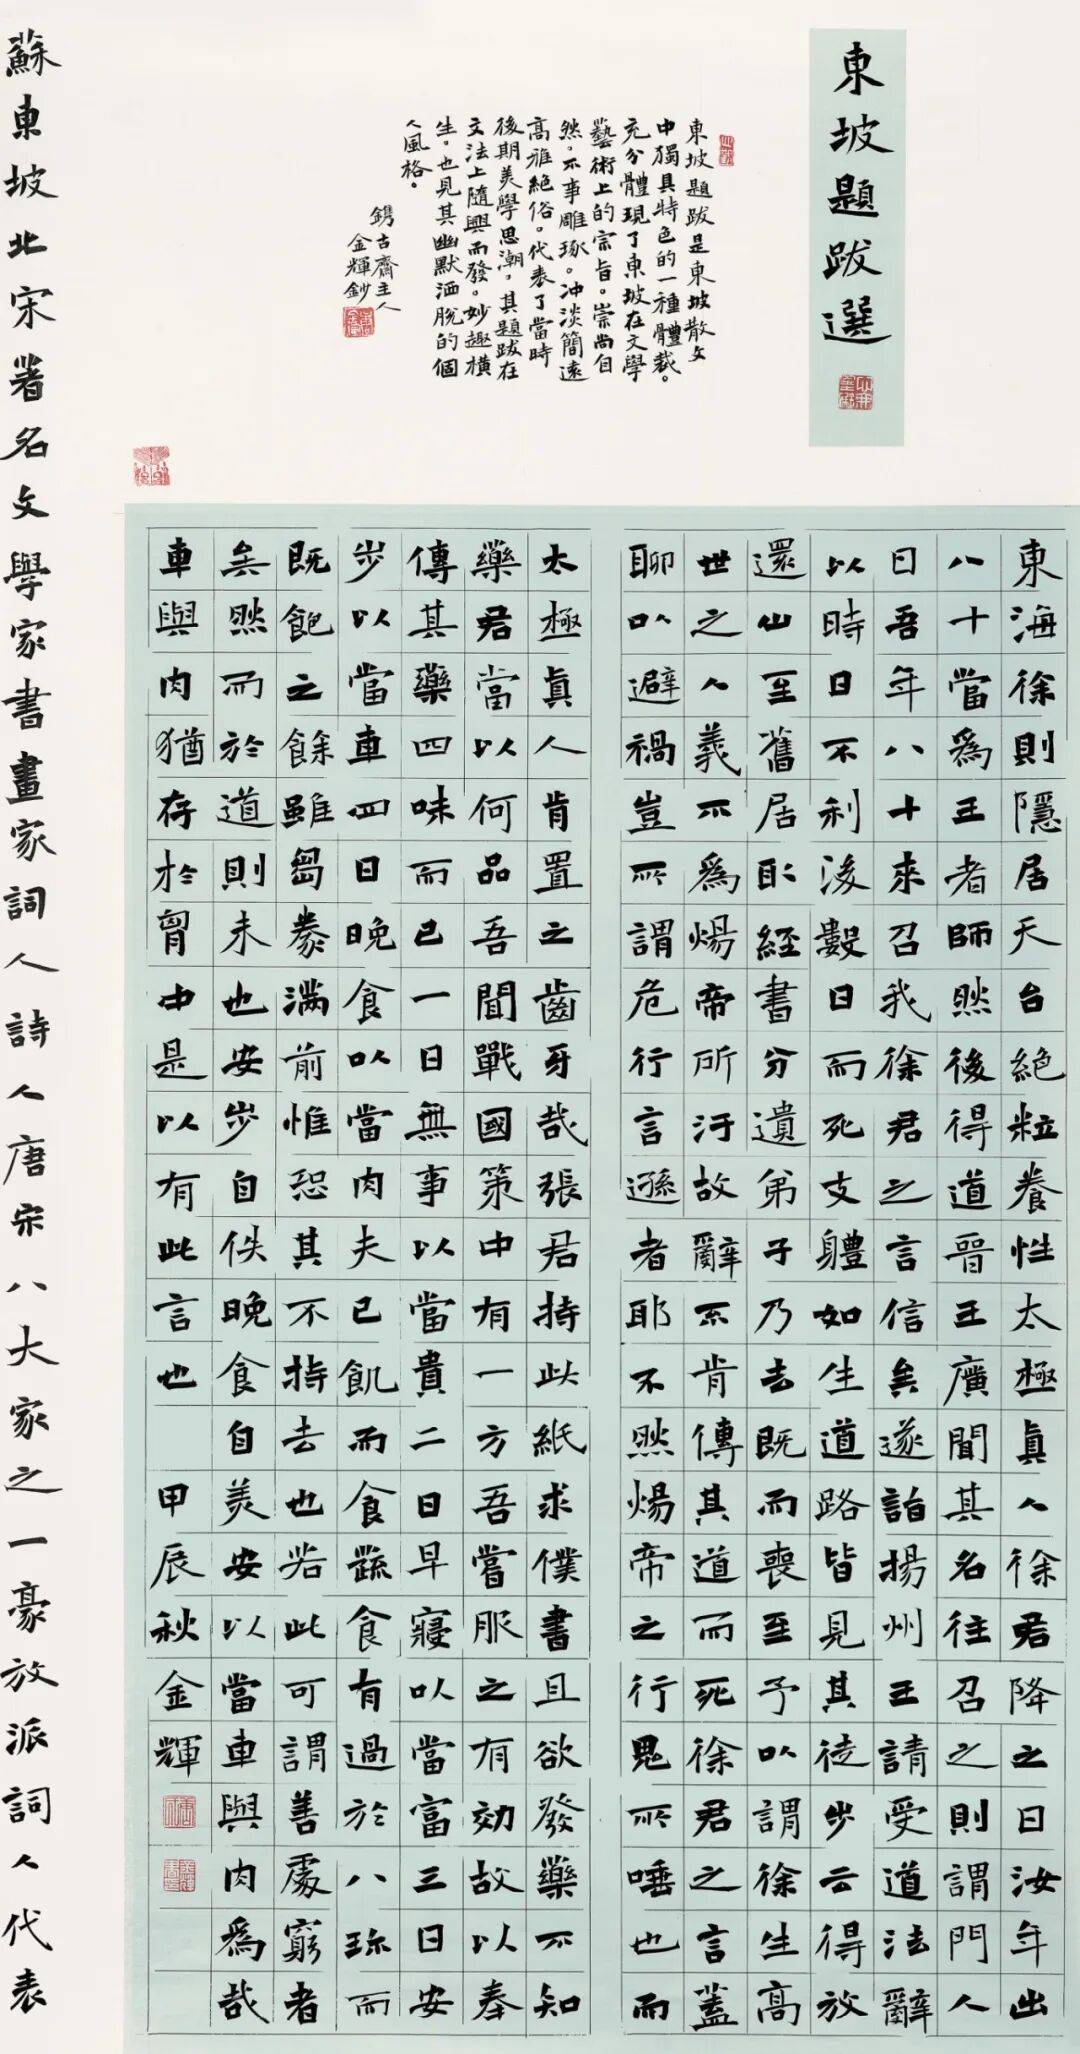 東坡題跋選
東坡題跋是東坡散文
中獨具特色的一種體裁。
充分體現了東坡在文學
藝術上的宗旨。崇尚自
然。不事雕琢。冲淡簡遠
高雅絕俗。代表了當時
後期美學思潮。其題跋在
文法上隨興而發。妙趣橫
生。也見其幽默洒脫的個
人風格。
鎸古齋主人
金輝鈔
東海徐則隱居天台絕粒養性太極真人徐君降之曰汝年出
八十當為王者師然後得道晉王廣聞其名往召之則謂門人
曰吾年八十來召我徐君之言信矣遂詣揚州王請受道法辭
以時日不利後數日而死支體如生道路皆見其徒步云得放
還山至舊居取經書分遺弟子乃去既而喪至予以謂徐生高
世之人義不為煬帝所汙故辭不肯傳其道而死徐君之言蓋
聊以避禍豈所謂危行言遜者耶不然煬帝之行鬼所唾也而
太極真人肯置之齒牙哉張君持此紙求僕書且欲發藥不知
藥君當以何品吾聞戰國策中有一方吾嘗服之有効故以奉
傳其藥四味而已一曰無事以當貴二曰早寢以當富三曰安
步以當車四曰晚食以當肉夫已飢而食蔬食有過於八珍而
既飽之餘雖芻豢滿前惟恐其不持去也若此可謂善處窮者
矣然而於道則未也安步自佚晚食自美安以當車與肉為哉
車與肉猶存於胷中是以有此言也 甲辰秋金輝
蘇東坡北宋著名文學家書畫家詞人詩人唐宋八大家之一豪放派詞人代表